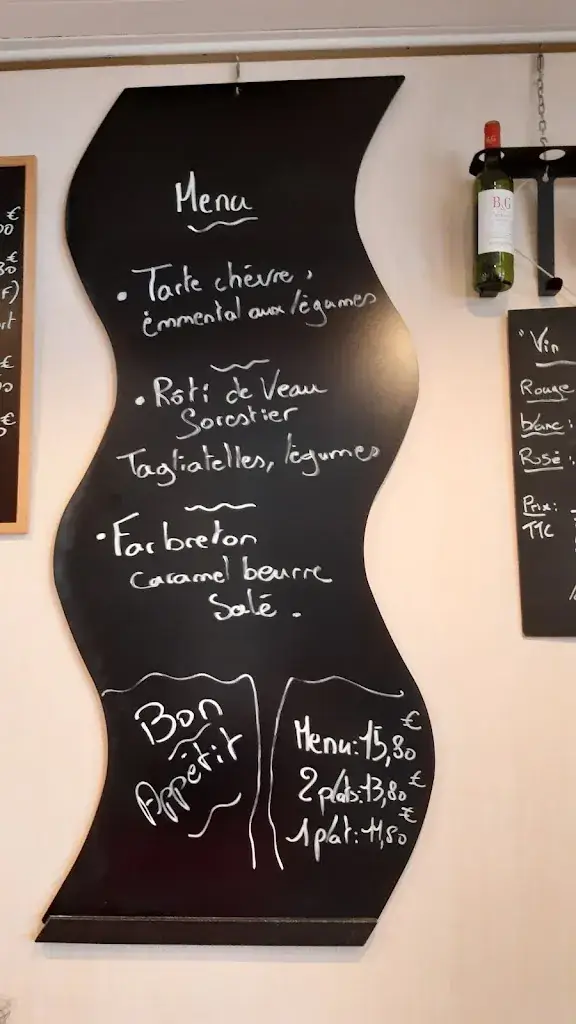 Menu
• Tarte chèvre,
émmental aux légumes
• Rôti de Veau
Sorestier
Tagliatelles, légumes
• Far breton
caramel beurre
Salé.
Bon
Appétit
Menu: 15,80 €
2 plats: 13,80 €
1 plat: 11,80 €
B&G
"Vin
Rouge
blanc:
Rosé:
Prix:
TTC
€
€
F)
€
€